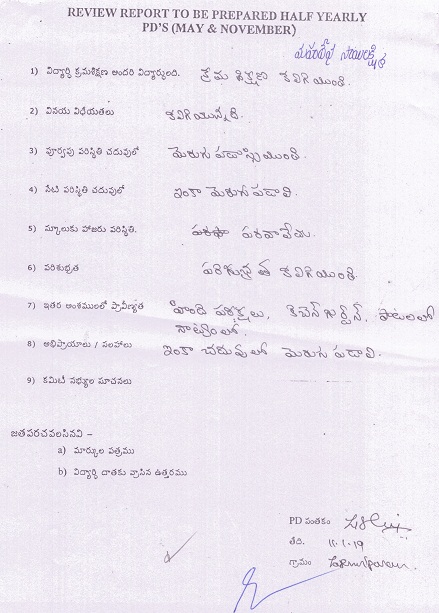 REVIEW REPORT TO BE PREPARED HALF YEARLY
PD'S (MAY & NOVEMBER)
1) విద్యార్థి క్రమశిక్షణ అందరి విద్యార్థులది. క్రమ శిక్షణ కలిగి యుంది.
2) వినయ విధేయతలు కలిగి యున్నది.
3) పూర్వపు పరిస్థితి చదువులో మెరుగు పడాల్సి యుంది.
4) నేటి పరిస్థితి చదువులో ఇంకా మెరుగు పడాలి.
5) స్కూలుకు హాజరు పరిస్థితి. పరవాలేదు.
6) పరిశుభ్రత కలిగి యుంది.
7) ఇతర అంశములలో ప్రావీణ్యత హింది పరీక్షలు, కిచెన్ గార్డెన్, పాటలలో
నాట్యంలో.
8) అభిప్రాయాలు / సలహాలు ఇంకా చదువులో మెరుగు పడాలి.
9) కమిటీ సభ్యుల సూచనలు
జతపరచవలసినవి –
a) మార్కుల పత్రము
b) విద్యార్థి దాతకు వ్రాసిన ఉత్తరము
PD సంతకం
తేది. 11.1.19
గ్రామం